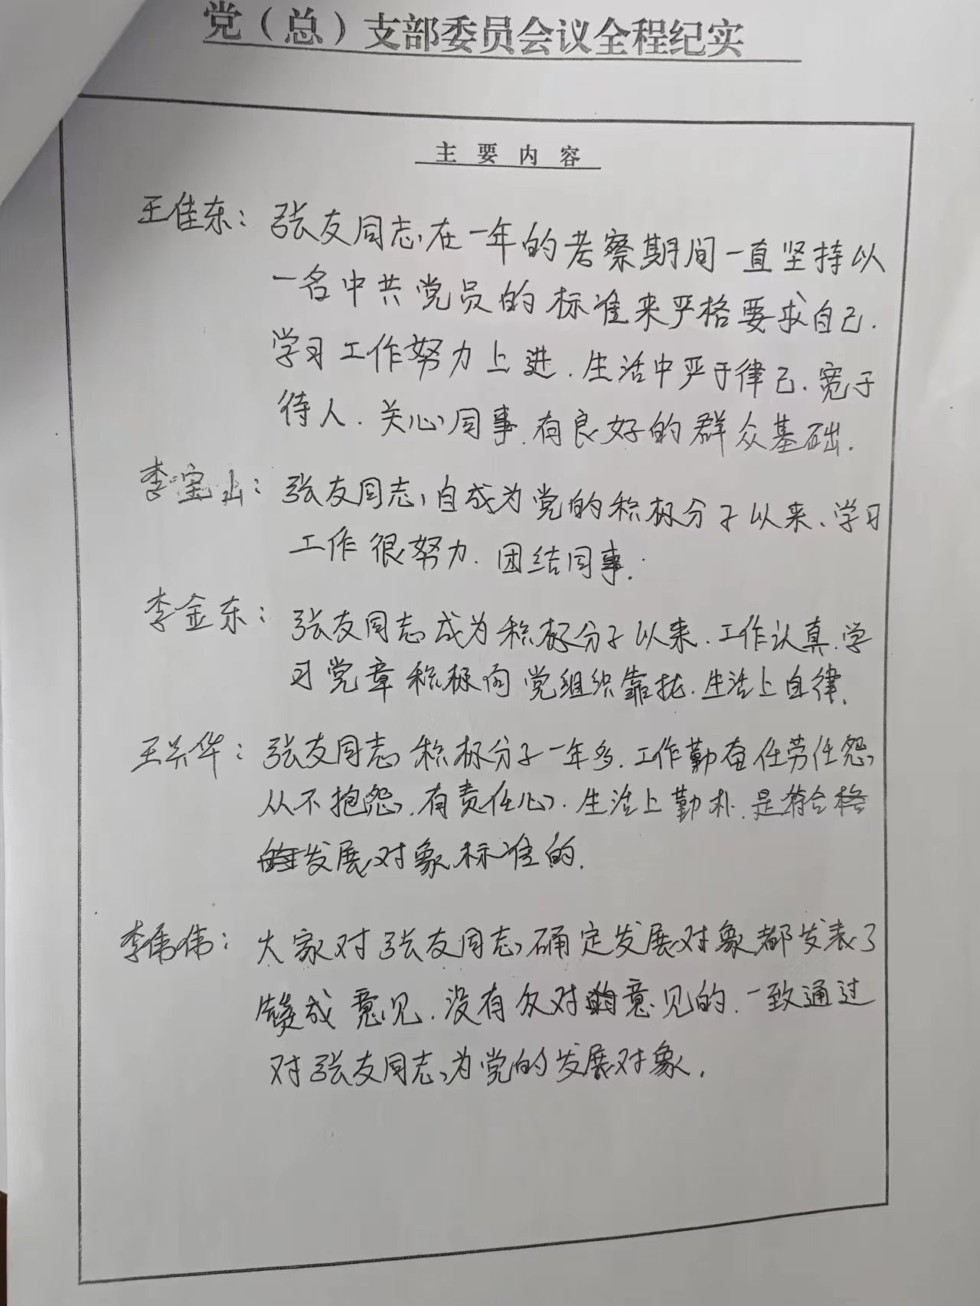 党（总）支部委员会议全程纪实
主要内容
王佳东：张友同志在一年的考察期间一直坚持以
一名中共党员的标准来严格要求自己.
学习工作努力上进.生活中严于律己.宽于
待人.关心同事.有良好的群众基础.
李宝山：张友同志,自成为党的积极分子以来、学习
工作很努力.团结同事.
李金东：张友同志成为积极分子以来.工作认真.学
习党章积极向党组织靠拢.生活上自律.
王兴华：张友同志积极分子一年多.工作勤奋任劳任怨,
从不抱怨,有责任心.生活上勤朴.是符合格
发展对象标准的.
李伟：大家对张友同志确定发展对象都发表了
赞成意见.没有反对意见的.一致通过
对张友同志为党的发展对象.